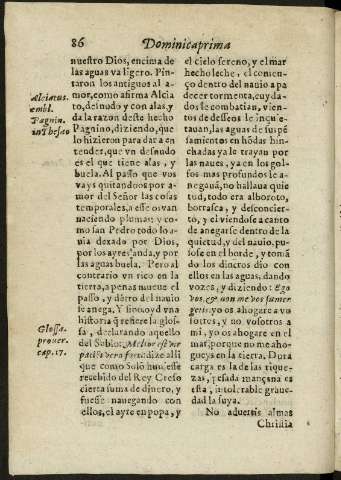 86 Dominica prima
nuestro Dios, encima de
las aguas va ligero. Pin-
taron los antiguos al a-
mor, como afirma Alcia
to, desnudo y con alas, y
da la razon deste hecho
Pagnino, diziendo, que
lo hizieron para dar a en
tender, que vn desnudo
es el que tiene alas, y
buela. Al passo que vos
vays quitandoos por a-
mor del Señor las cosas
temporales, a esse os van
naciendo plumas: y co-
mo san Pedro todo lo a-
uia dexado por Dios,
por los ayres anda, y por
las aguas buela. Pero al
contrario vn rico en la
tierra, a penas mueue el
passo, y dẽtro del nauio
se anega. Y sino oyd vna
historia q̃ refiere la glos-
sa, declarando aquello
del Sabio: Melior est vir
dize alli
que como Solõ huuiesse
recebido del Rey Creso
cierta suma de dinero, y
fuesse nauegando con
ellos, el ayre en popa, y
Alciatus.
embl.
Pagnin.
in Theseo
Glossa.
prouer.
cap. 17.
el cielo sereno, y el mar
hecho leche, el comien-
ço dentro del nauio a pa
decer tormenta, cuyda-
dos le combatian, vien-
tos de desseos le inquie-
tauan, las aguas de suspẽ
samientos en hõdas hin-
chadas ya le trayan por
las naues, ya en los gol-
fos mas profundos le a-
negauã, no hallaua quie
tud, todo era alboroto,
borrasca, y desconcier-
to, y el viendose a canto
de anegarse dentro de la
quietud, y del nauio, pu-
sose en el borde, y tomã
do los dineros dio con
ellos en las aguas, dando
vozes, y diziendo: Ego
vos, & non me vos sumer
getis: yo os ahogare a vo
sotros, y no vosotros a
mi, yo os ahogare en el
mar, porque no me aho-
gueys en la tierra. Dura
carga es la de las rique-
zas, pesada mançana es
esta, intolerable graue-
dad la suya.
No aduertis almas
Christia